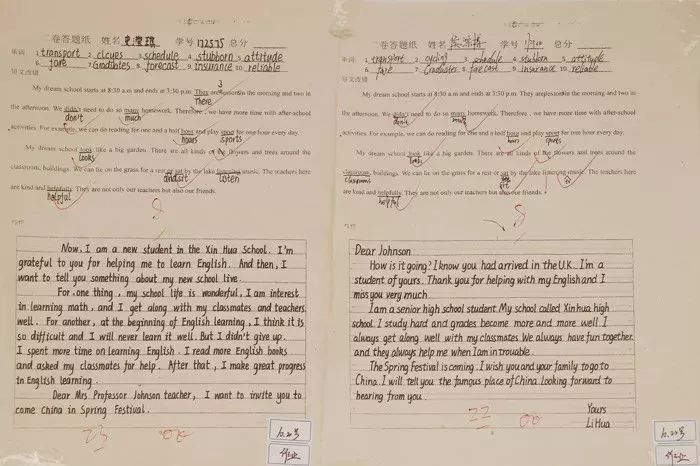 二卷答题纸 姓名 学号 172575 总分
单词 1. transport 2. clcyes 3. schedule 4. stubborn 5. attitude
6. fare 7. Gradutates 8. forecast 9. insurance 10. reliable
短文改错
My dream school starts at 8:30 a.m and ends at 3:30 p.m. They are lesson in the morning and two in
There 3
the afternoon. We didn't need to do so many homework. Therefore, we have more time with after-school
don't much
activities. For example, we can do reading for one and a half hour and play sport for one hour every day.
hours sports
My dream school look like a big garden. There are all kinds of the flowers and trees around the
looks
classroom, buildings. We can lie on the grass for a rest or sat by the lake listening music. The teachers here
and sit listen
are kind and helpfully. They are not only our teachers but also our friends.
helpful
8
Now, I am a new student in the Xin Hua School. I'm
grateful to you for helping me to learn English. And then, I
want to tell you something about my new school live.
For one thing, my school life is wonderful, I am interest
in learning math, and I get along with my classmates and teachers
well. For another, at the beginning of English learning, I think it is
so difficult and I will never learn it well. But I didn't give up.
I spent more time on learning English. I read more English books
and asked my classmates for help. After that, I make great progress
in English learning.
Dear Mrs Professor Johnson teacher, I want to invite you to
come China in Spring Festival.
23
二卷答题纸 姓名 学号 总分
单词 1. transport 2. cycling 3. schedule 4. stubborn 5. attitude
6. fare 7. Graduates 8. forecast 9. insurance 10. reliable
短文改错
My dream school starts at 8:30 a.m and ends at 3:30 p.m. They are lesson in the morning and two in
the afternoon. We didn't need to do so many homework. Therefore, we have more time with after-school
don't much
activities. For example, we can do reading for one and a half hour and play sport for one hour every day.
hours sports
My dream school look like a big garden. There are all kinds of the flowers and trees around the
looks
classroom, buildings. We can lie on the grass for a rest or sat by the lake listening music. The teachers here
classrooms sit
are kind and helpfully. They are not only our teachers but also our friends.
helpful
8
Dear Johnson
How is it going? I know you had arrived in the U.K. I'm a
student of yours. Thank you for helping with my English and I
miss you very much
I am a senior high school student. My school called Xinhua high
school. I study hard and grades become more and more well. I
always get along well with my classmates. We always have fun together.
and they always help me when I am in trouable.
The Spring Festival is coming. I wish you and your family to go to
China. I will tell you the famous place of China. Looking forward to
hearing from you.
Yours
Li Hua
22